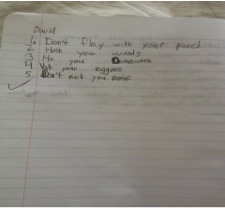 David
1. Don't Play with your pencil
2 Hush your words
3 Do your Homework
4 Eat your eggies
5 Don't pick you nose